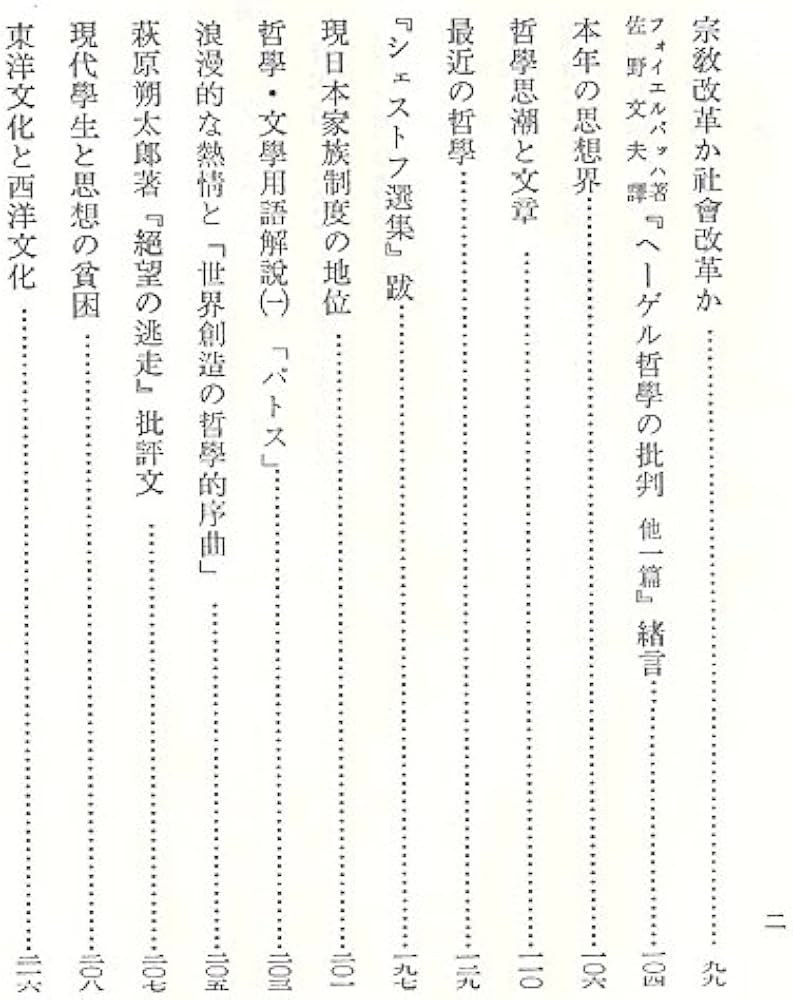 二
宗教改革か社會改革か……………………九九
フォイエルバッハ著
佐野文夫譯
『ヘーゲル哲學の批判 他一篇』緒言……………………一〇四
本年の思想界……………………一〇六
哲學思潮と文章……………………一一〇
最近の哲學……………………一二九
『シェストフ選集』跋……………………一九七
現日本家族制度の地位……………………二〇一
哲學・文學用語解說(一)「パトス」……………………二〇三
浪漫的な熱情と「世界創造の哲學的序曲」……………………二〇五
萩原朔太郎著『絕望の逃走』批評文……………………二〇七
現代學生と思想の貧困……………………二〇八
東洋文化と西洋文化……………………二一六